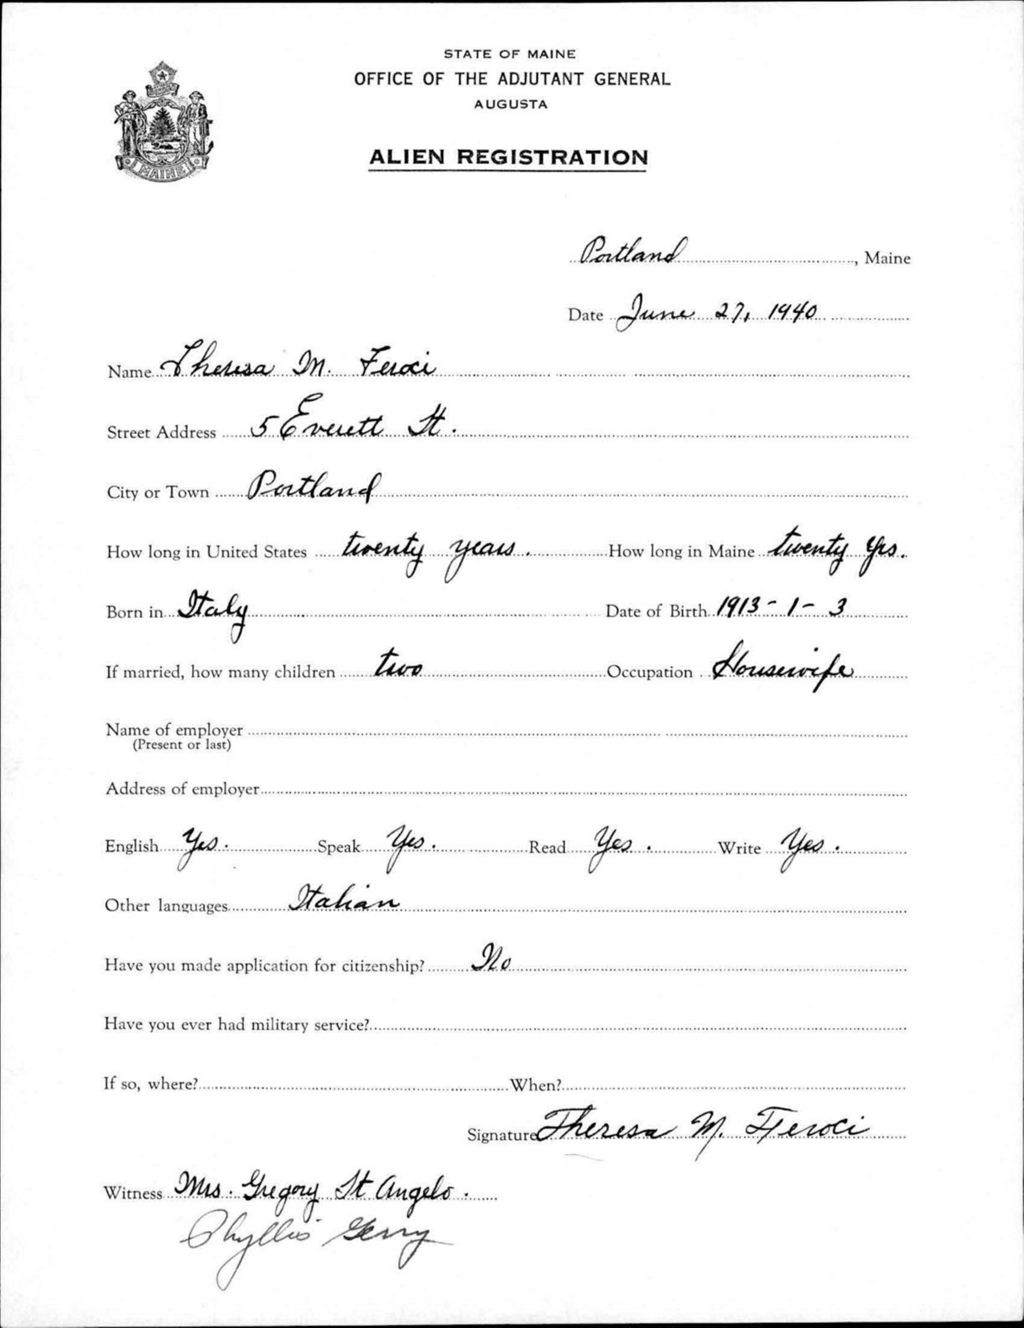 STATE OF MAINE
OFFICE OF THE ADJUTANT GENERAL
AUGUSTA
ALIEN REGISTRATION
MAINE
Portland, Maine
Date June 27, 1940
Name Theresa M. Feroci
Street Address 5 Everett St.
City or Town Portland
How long in United States twenty years. How long in Maine twenty yrs.
Born in Italy Date of Birth 1913-1-3
If married, how many children two Occupation Housewife
Name of employer
(Present or last)
Address of employer
English Yes. Speak Yes. Read Yes. Write Yes.
Other languages Italian
Have you made application for citizenship? No
Have you ever had military service?
If so, where? When?
Signature Theresa M. Feroci
Witness Mrs. Gregory St Angelo.
Phyllis Gerry